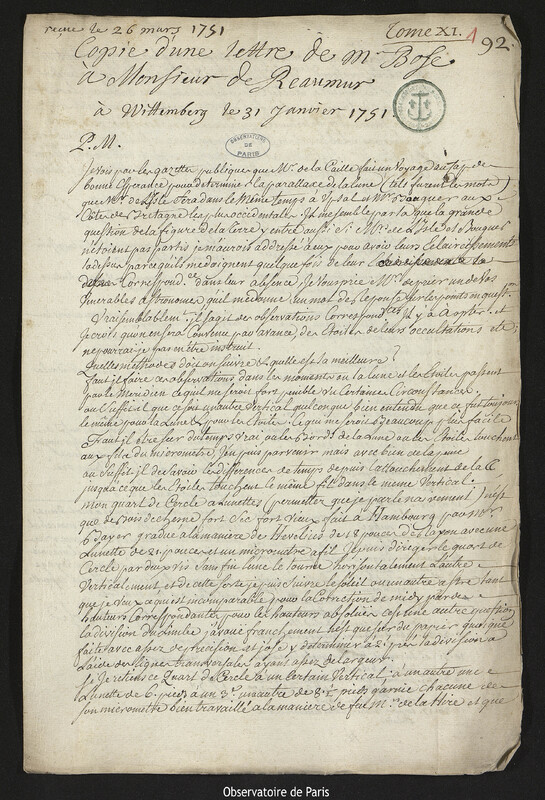 reçue le 26 mars 1751
Tome XI. 1
92.
Copie d'une lettre de mr Bose
a Monsieur de Reaumur
à Wittemberg le 31 Janvier 1751
OBSERVATOIRE DE PARIS
P. M.
Je vois par les gazettes publiques que Mr. de la Caille fait un Voyage au Cap de
bonne Esperance pour determiner la parallaxe de la lune (tels furent les mots)
que Mr. de L'isle fera dans le même temps à Upsal et Mr. Bouguer aux
Côtes de Bretagne les plus occidentales. Il me semble par la que la grande
question de la figure de la terre y entre aussi. Si Mrs. de L'isle et Bouguer
n'etoient pas partis je m'aurois addressé à eux pour avoir leurs Eclaircissements
la dessus parce qu'ils me daignent quelque fois de leur
Correspondce. dans leur absence je vous prie Mr. de prier un de vos
venerables astronomes qu'il me donne un mot de reponse sur les points en questn.
Vraisemblablemt. il s'agit des observations correspondtes.
Je crois qu'on en sera Convenu par avance, des Etoiles de leurs occultations etc
ne pourrai je pas m'en être instruit.
Quelles methodes doit on suivre et quelle est la meilleure?
faut il faire ces observations dans les moments ou la lune et les Etoiles passent
par le Meridien ce qui me seroit fort penible vu Certaines Circonstances,
ou suffit il que ce soit un autre Vertical quelconque bien entendu que ce fut toujours
le même pour la Lune et pour les Etoiles. Ce qui me seroit beaucoup plus facile
Faut il être sur du temps Vrai, ou les Bords de la Lune ou les Etoiles touchent
aux fils du micrometre, J'en puis parvenir mais avec bien de la peine
ou suffit il de sçavoir les differences de temps depuis l'attouchement de la ☾
jusqu'à ce que les Etoiles touchent le même fil dans le même Vertical.
Mon quart de Cercle a Lunettes (permettez que je parle naivement) n'est
que de bois de chene fort sec fort vieux fait à Hambourg passé
gradué a la maniere de Hevelius de 18 pouces de rayon avec une
Lunette de 21 pouces et un micrometre a fil. Je puis diriger le quart de
Cercle par deux vis sans fin l'une le tourne horisontalement l'autre
Verticalement, et de cette sorte je puis suivre le soleil ou un autre astre tant
que je veux ce qui est incomparable pour la Correction de midy par des
hauteurs Correspondantes, pour les hauteurs absolües c'est une autre question
la division du Limbe j'avoue franchement n'est que sur du papier quoique
faite avec assez de precision et j'ose y determiner a 2' pres la division a
l'aide des lignes transversales ayant assez de largeur.
Je destine ce Quart de Cercle a un certain Vertical; à un autre une
Lunette de 6. pieds à un 3e. une autre de 8½ pieds garnie chacune de
son micrometre bien travaillé a la maniere de feu Mr. de la Hire et que
Observatoire de Paris